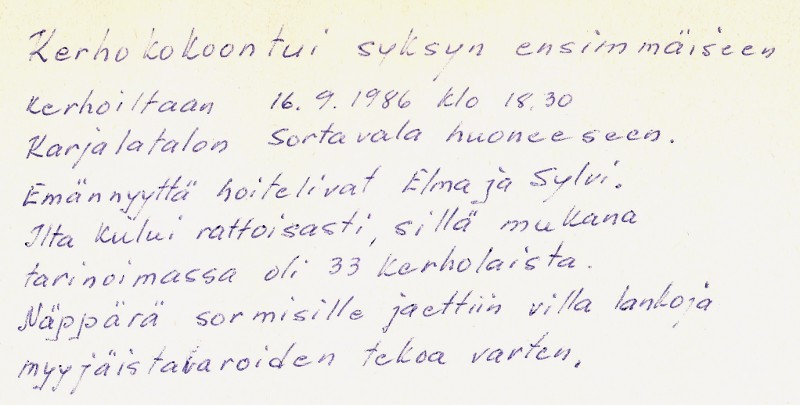 Kerho kokoontui syksyn ensimmäiseen
kerhoiltaan 16.9.1986 klo 18.30
Karjalatalon Sortavala huoneeseen.
Emännyyttä hoitelivat Elma ja Sylvi.
Ilta kului rattoisasti, sillä mukana
tarinoimassa oli 33 kerholaista.
Näppärä sormisille jaettiin villa lankoja
myyjäistavaroiden tekoa varten.